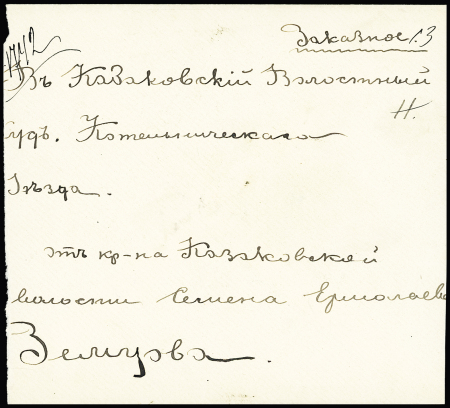 Заказное 13
1742
Въ Казаковскій Волостный
Н.
Судъ. Котельническаго
Уѣзда.
отъ кр-на Казаковской
волости Семена Ермолаева
Земцова.